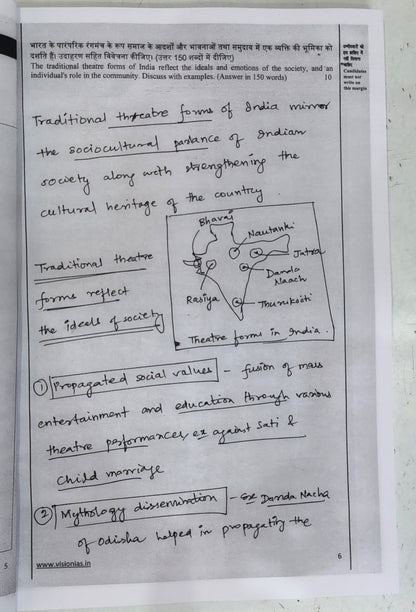 भारत के पारंपरिक रंगमंच के रूप समाज के आदर्शों और भावनाओं तथा समुदाय में एक व्यक्ति की भूमिका को
दर्शाते हैं। उदाहरण सहित विवेचना कीजिए। (उत्तर 150 शब्दों में दीजिए)
The traditional theatre forms of India reflect the ideals and emotions of the society, and an
individual's role in the community. Discuss with examples. (Answer in 150 words) 10
उम्मीदवारों को
इस हाशिए में
नहीं लिखना
चाहिए
Candidates
must not
write on
this margin
Traditional threatre forms of India mirror
the sociocultural parlance of Indian
society along with strengthening the
cultural heritage of the country.
Bhavai
Nautanki
Jatra
Danda
Naach
Rasiya
Theatre forms in India.
Traditional theatre
forms reflect
the ideals of society
1 Propagated social values - fusion of mass
entertainment and education through various
theatre performances, ex against Sati &
Child marriage
2 Mythology dissemination - Ex Danda Nacha
of Odisha helped in propagating the
www.visionias.in
6
5